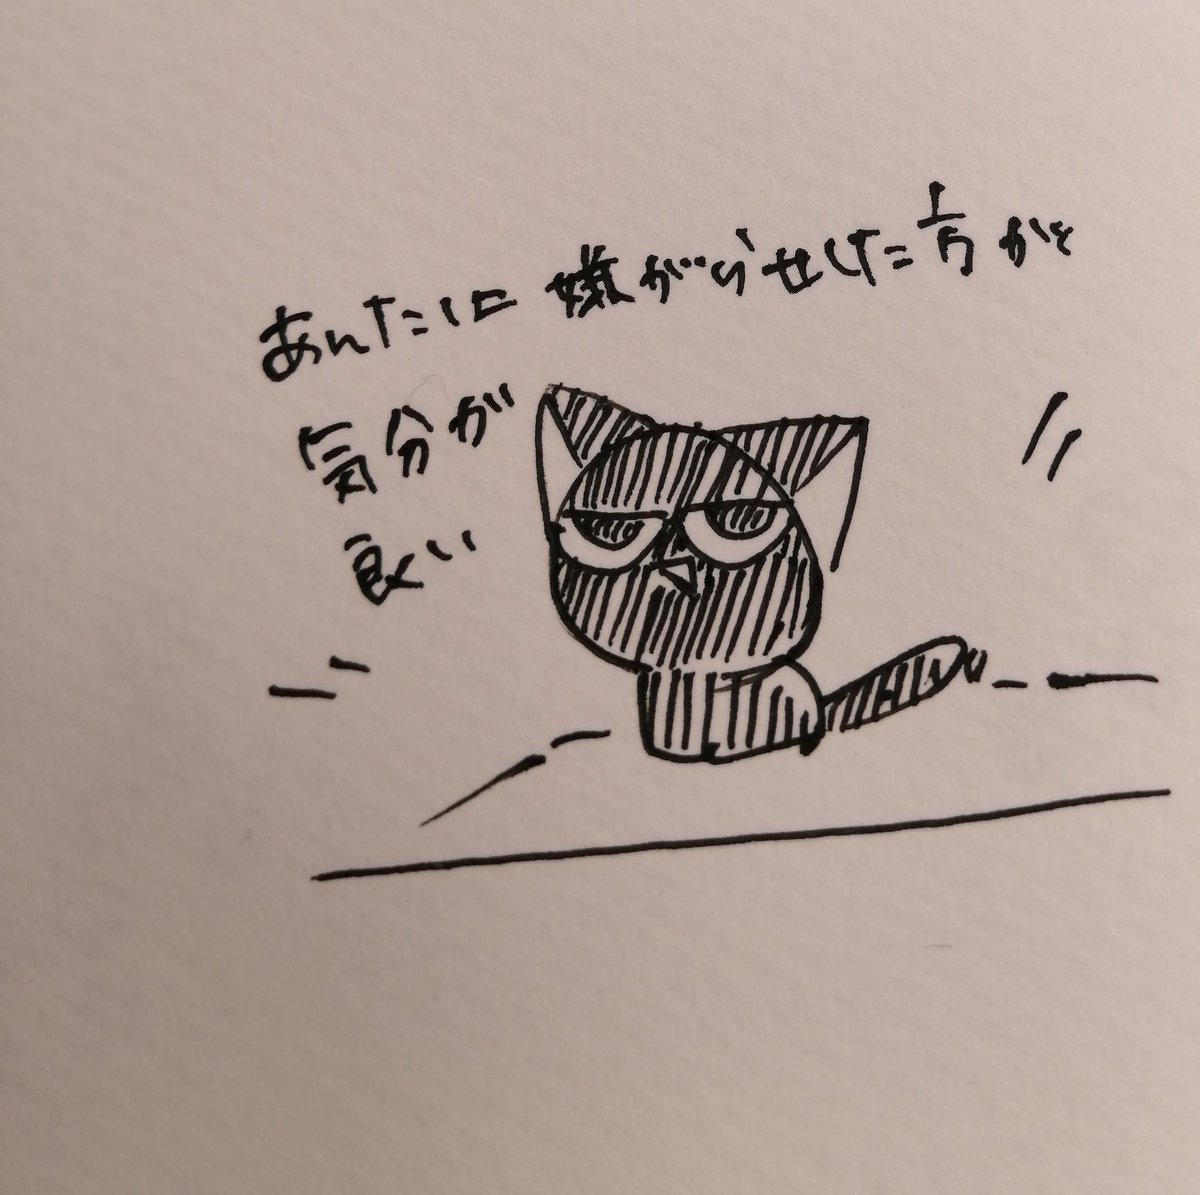 あんたに嫌がらせした方がと
気分が
良い